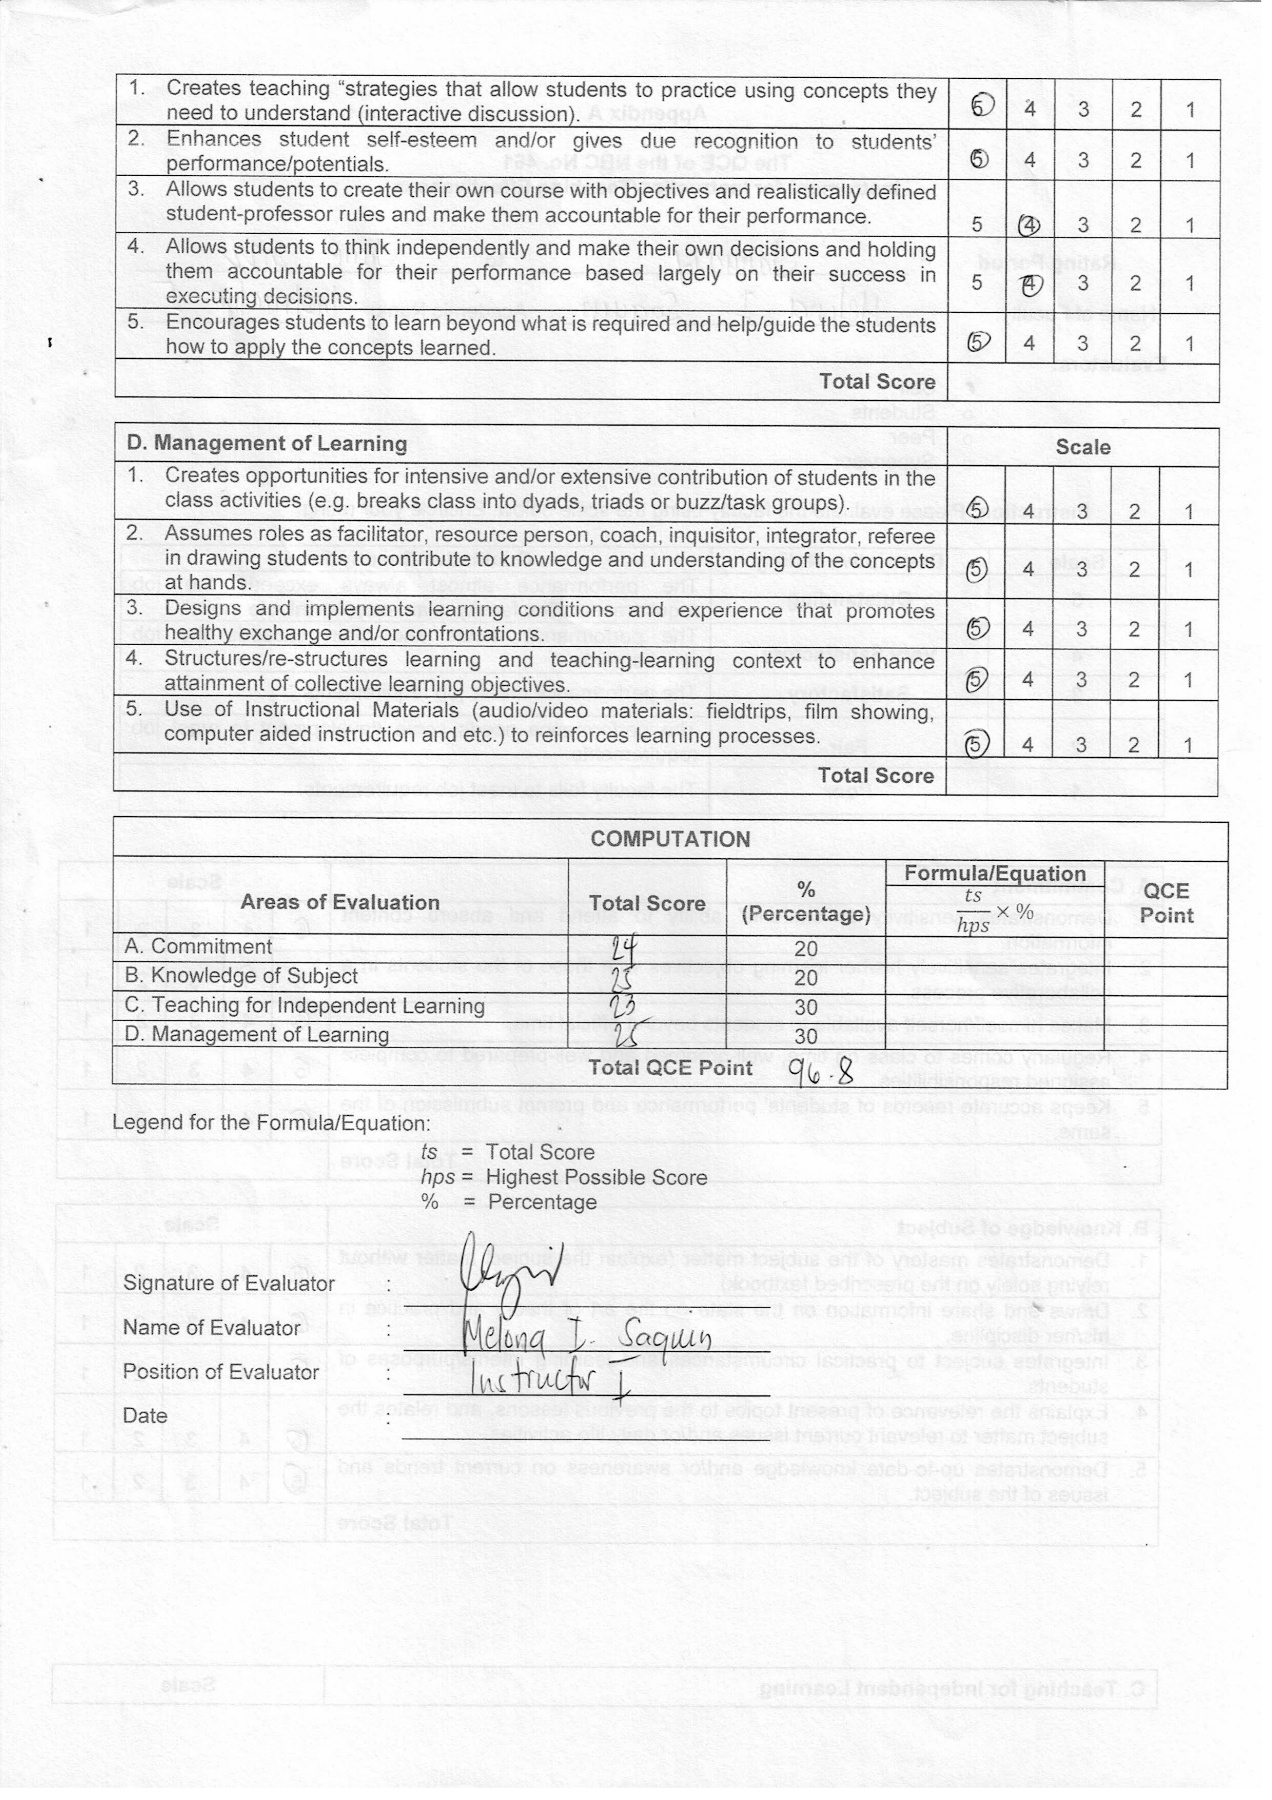 1. Creates teaching “strategies that allow students to practice using concepts they
need to understand (interactive discussion). 5 4 3 2 1
2. Enhances student self-esteem and/or gives due recognition to students’
performance/potentials. 5 4 3 2 1
3. Allows students to create their own course with objectives and realistically defined
student-professor rules and make them accountable for their performance. 5 4 3 2 1
4. Allows students to think independently and make their own decisions and holding
them accountable for their performance based largely on their success in
executing decisions. 5 4 3 2 1
5. Encourages students to learn beyond what is required and help/guide the students
how to apply the concepts learned. 5 4 3 2 1
Total Score
D. Management of Learning Scale
1. Creates opportunities for intensive and/or extensive contribution of students in the
class activities (e.g. breaks class into dyads, triads or buzz/task groups). 5 4 3 2 1
2. Assumes roles as facilitator, resource person, coach, inquisitor, integrator, referee
in drawing students to contribute to knowledge and understanding of the concepts
at hands. 5 4 3 2 1
3. Designs and implements learning conditions and experience that promotes
healthy exchange and/or confrontations. 5 4 3 2 1
4. Structures/re-structures learning and teaching-learning context to enhance
attainment of collective learning objectives. 5 4 3 2 1
5. Use of Instructional Materials (audio/video materials: fieldtrips, film showing,
computer aided instruction and etc.) to reinforces learning processes. 5 4 3 2 1
Total Score
COMPUTATION
Areas of Evaluation Total Score % (Percentage) Formula/Equation ts/hps × % QCE Point
A. Commitment 24 20
B. Knowledge of Subject 25 20
C. Teaching for Independent Learning 23 30
D. Management of Learning 25 30
Total QCE Point 96.8
Legend for the Formula/Equation:
ts = Total Score
hps = Highest Possible Score
% = Percentage
Signature of Evaluator :
Name of Evaluator : Melona I. Saquin
Position of Evaluator : Instructor I
Date :